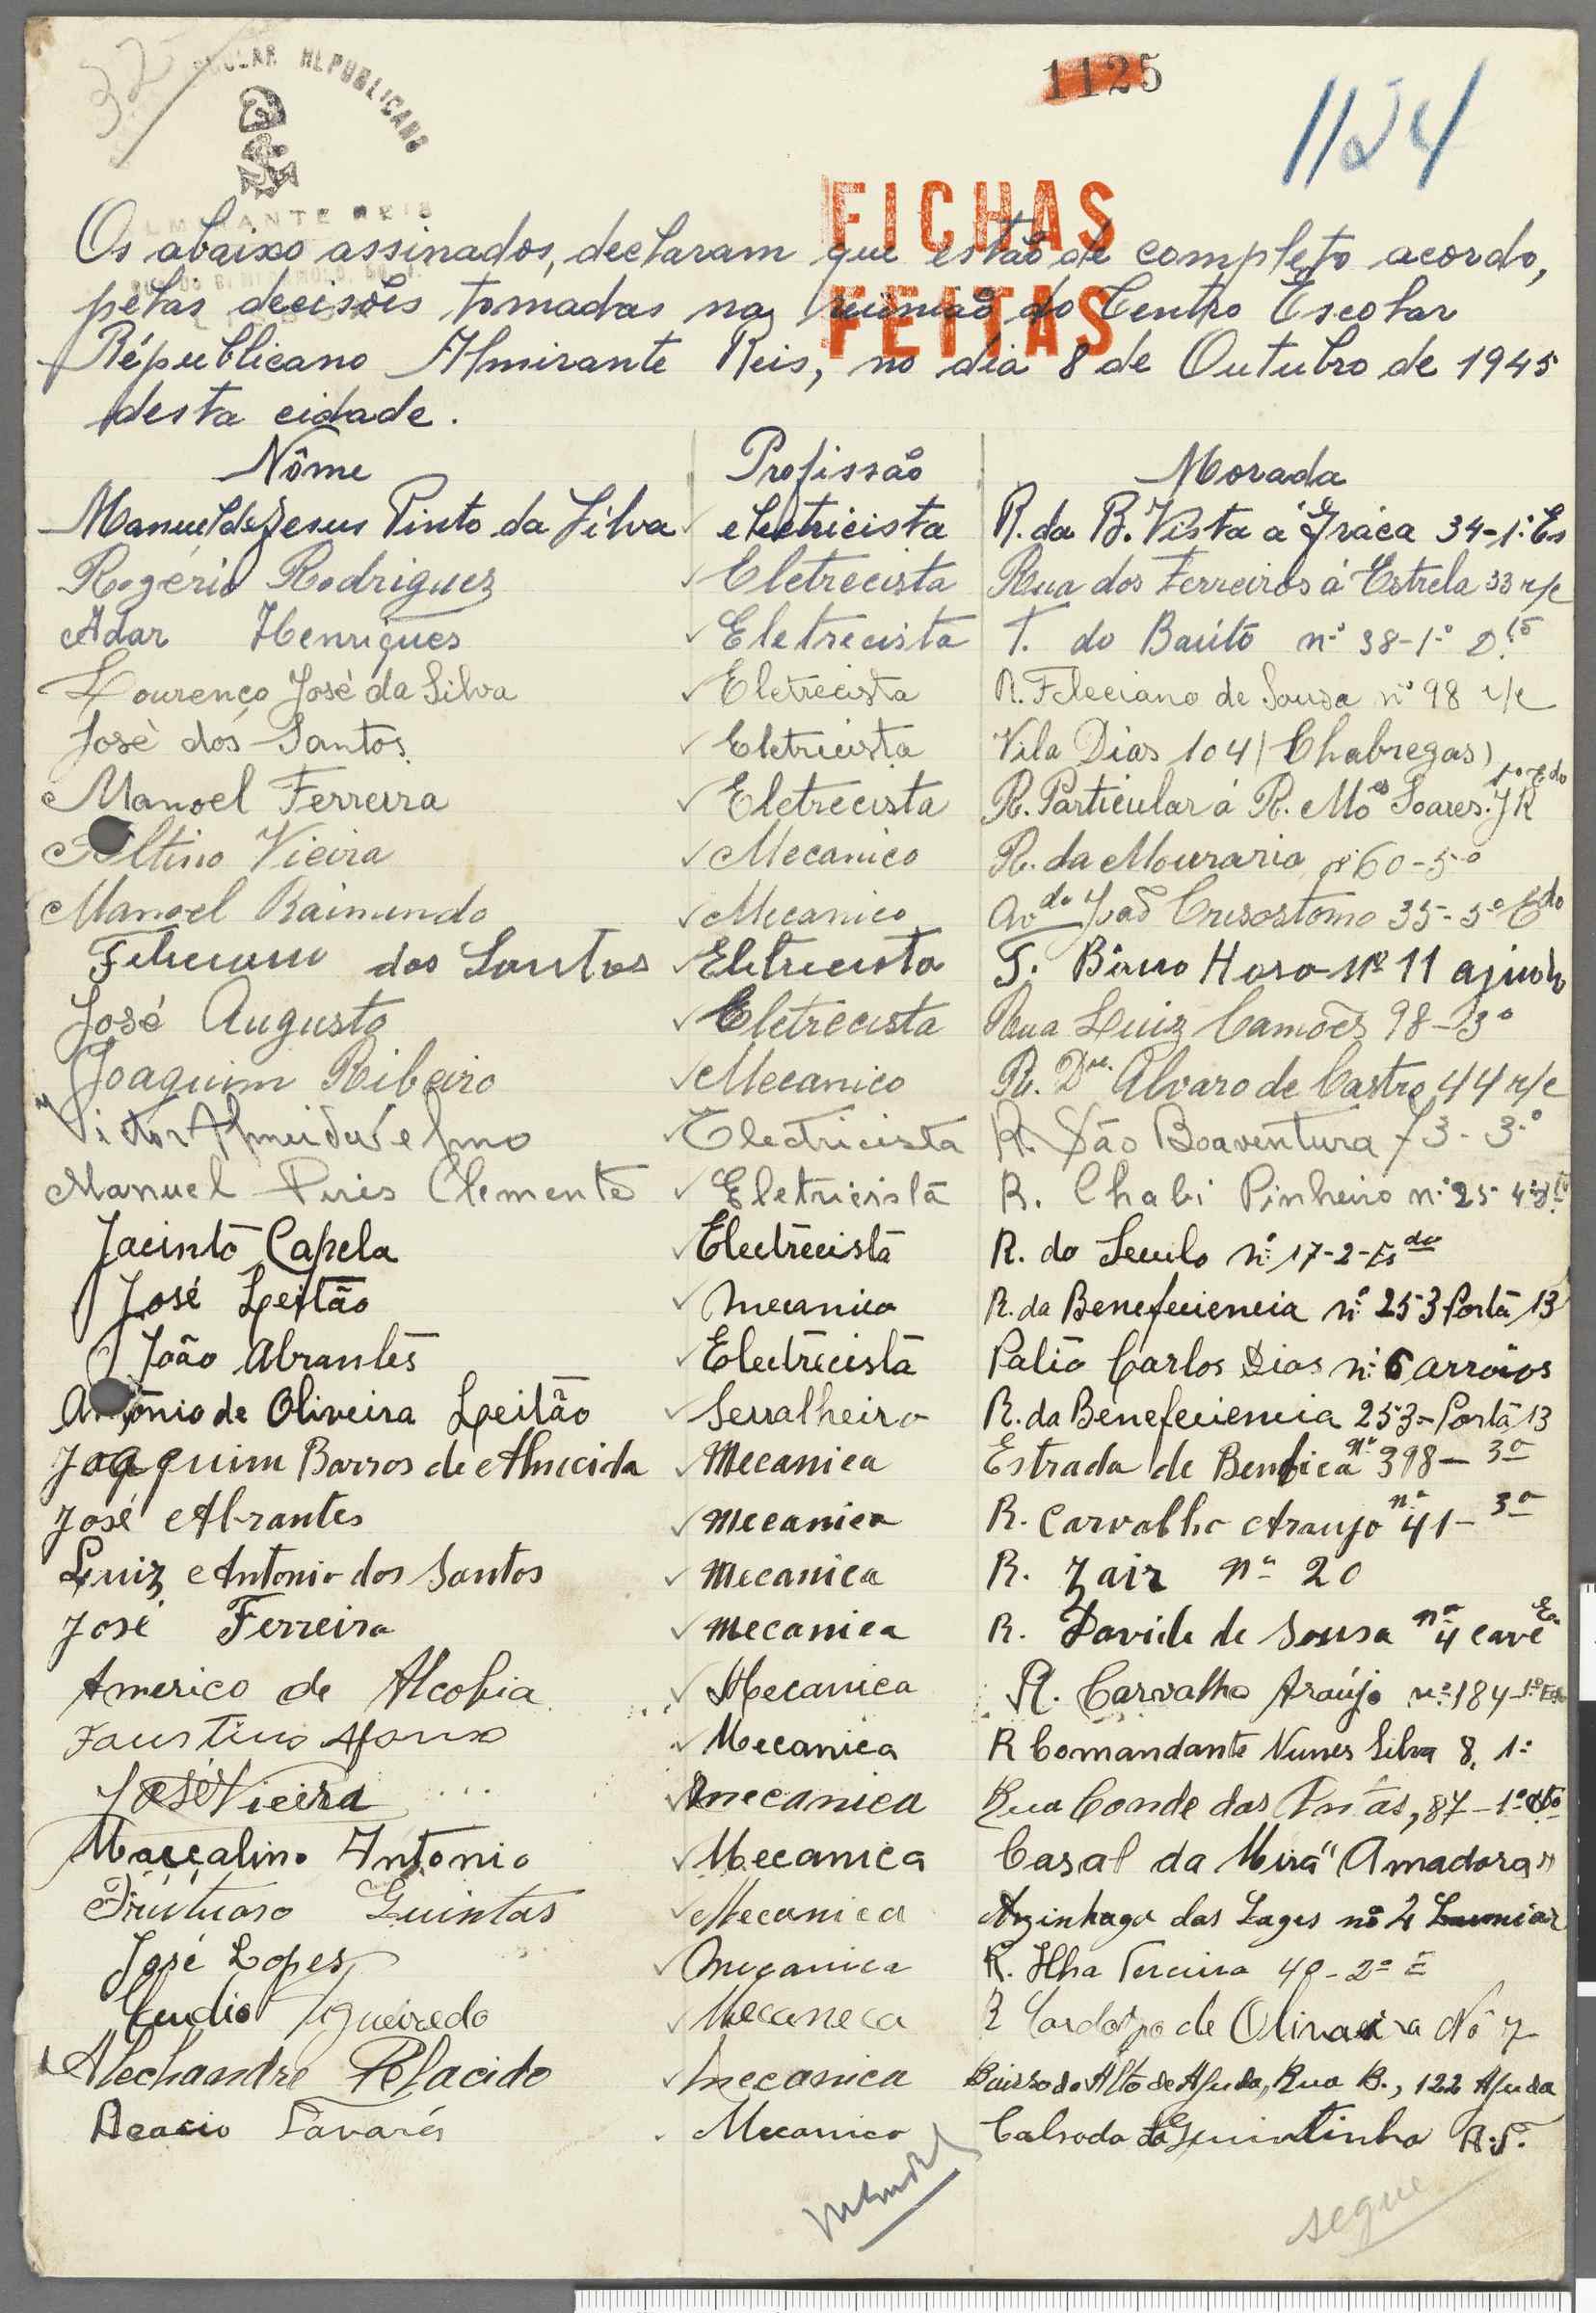 32
ESCOLAR REPUBLICANO
ALMIRANTE REIS
1125
1124
FICHAS
FEITAS
Os abaixo assinados, declaram que estão de completo acordo,
pelas decisões tomadas na reunião do Centro Escolar
Républicano Almirante Reis, no dia 8 de Outubro de 1945
desta cidade.
Nôme Profissão Morada
Manuel de Jesus Pinto da Silva electricista R. da B. Vista á Graça 34-1º Es
Rogério Rodrigues Eletrecista Rua dos Ferreiros á Estrela 33 r/c
Adar Henriques Eletrecista T. do Baúto nº 38-1º Dtº
Lourenço José da Silva Eletrecista R. Feleciano de Sousa nº 98 r/c
José dos Santos Eletricista Vila Dias 104 (Chabregas)
Manoel Ferreira Eletrecista R. Particular á R. Mº Soares. J R 1º Edo
Vieira Mecanico R. da Mouraria nº 60-5º
Manoel Raimundo Mecanico Avda João Crisostomo 35-5º Edo
dos Santos Eletrecista T. nº 11 ajuda
José Augusto Eletrecista Rua Luiz Camões 98-3º
Joaquim Ribeiro Mecanico R. Dr. Alvaro de Castro 44 r/c
Victor Almeida Electricista R. São Boaventura 73-3º
Manuel Pires Clemente Eletricista R. Chabi Pinheiro nº 25 4º
Jacinto Capela Electrecista R. do Seculo nº 17-2-Esdo
José Leitão mecanico R. da Benefeciencia nº 253 Portã 13
João Abrantes Electrecista Patio Carlos Dias nº 6 arroios
António de Oliveira Leitão Serralheiro R. da Benefeciencia 253-Portã 13
Joaquim Barros de Almeida Mecanica Estrada de Benfica nº 398-3º
José Abrantes Mecanica R. Carvalho Araujo nº 41-3º
Luiz Antonio dos Santos Mecanica R. Zair nº 20
José Ferreira Mecanica R. Davide de Sousa nº 4 cave Eo
Americo de Alcobia Mecanica R. Carvalho Araújo nº 184-1º Esq
Faustino Afonso Mecanica R Comandante Nunes Silva 8, 1º
José Vieira mecanica Rua Conde das Antas, 87-1º dto
Marcalino Antonio Mecanica Casal da Mira "Amadora"
Frutuoso Quintas Mecanica Azinhaga das Lages nº 2 Lumiar
José Lopes Mecanica R. Ilha Terceira 40-2º E
Figueiredo Mecaneca R de Oliveira Nº 7
Alechandre Placido mecanica Bairro do Alto de Ajuda, Rua B., 122 Ajuda
Acacio Tavares Mecanico Calsada da Quintinha R.S.
segue